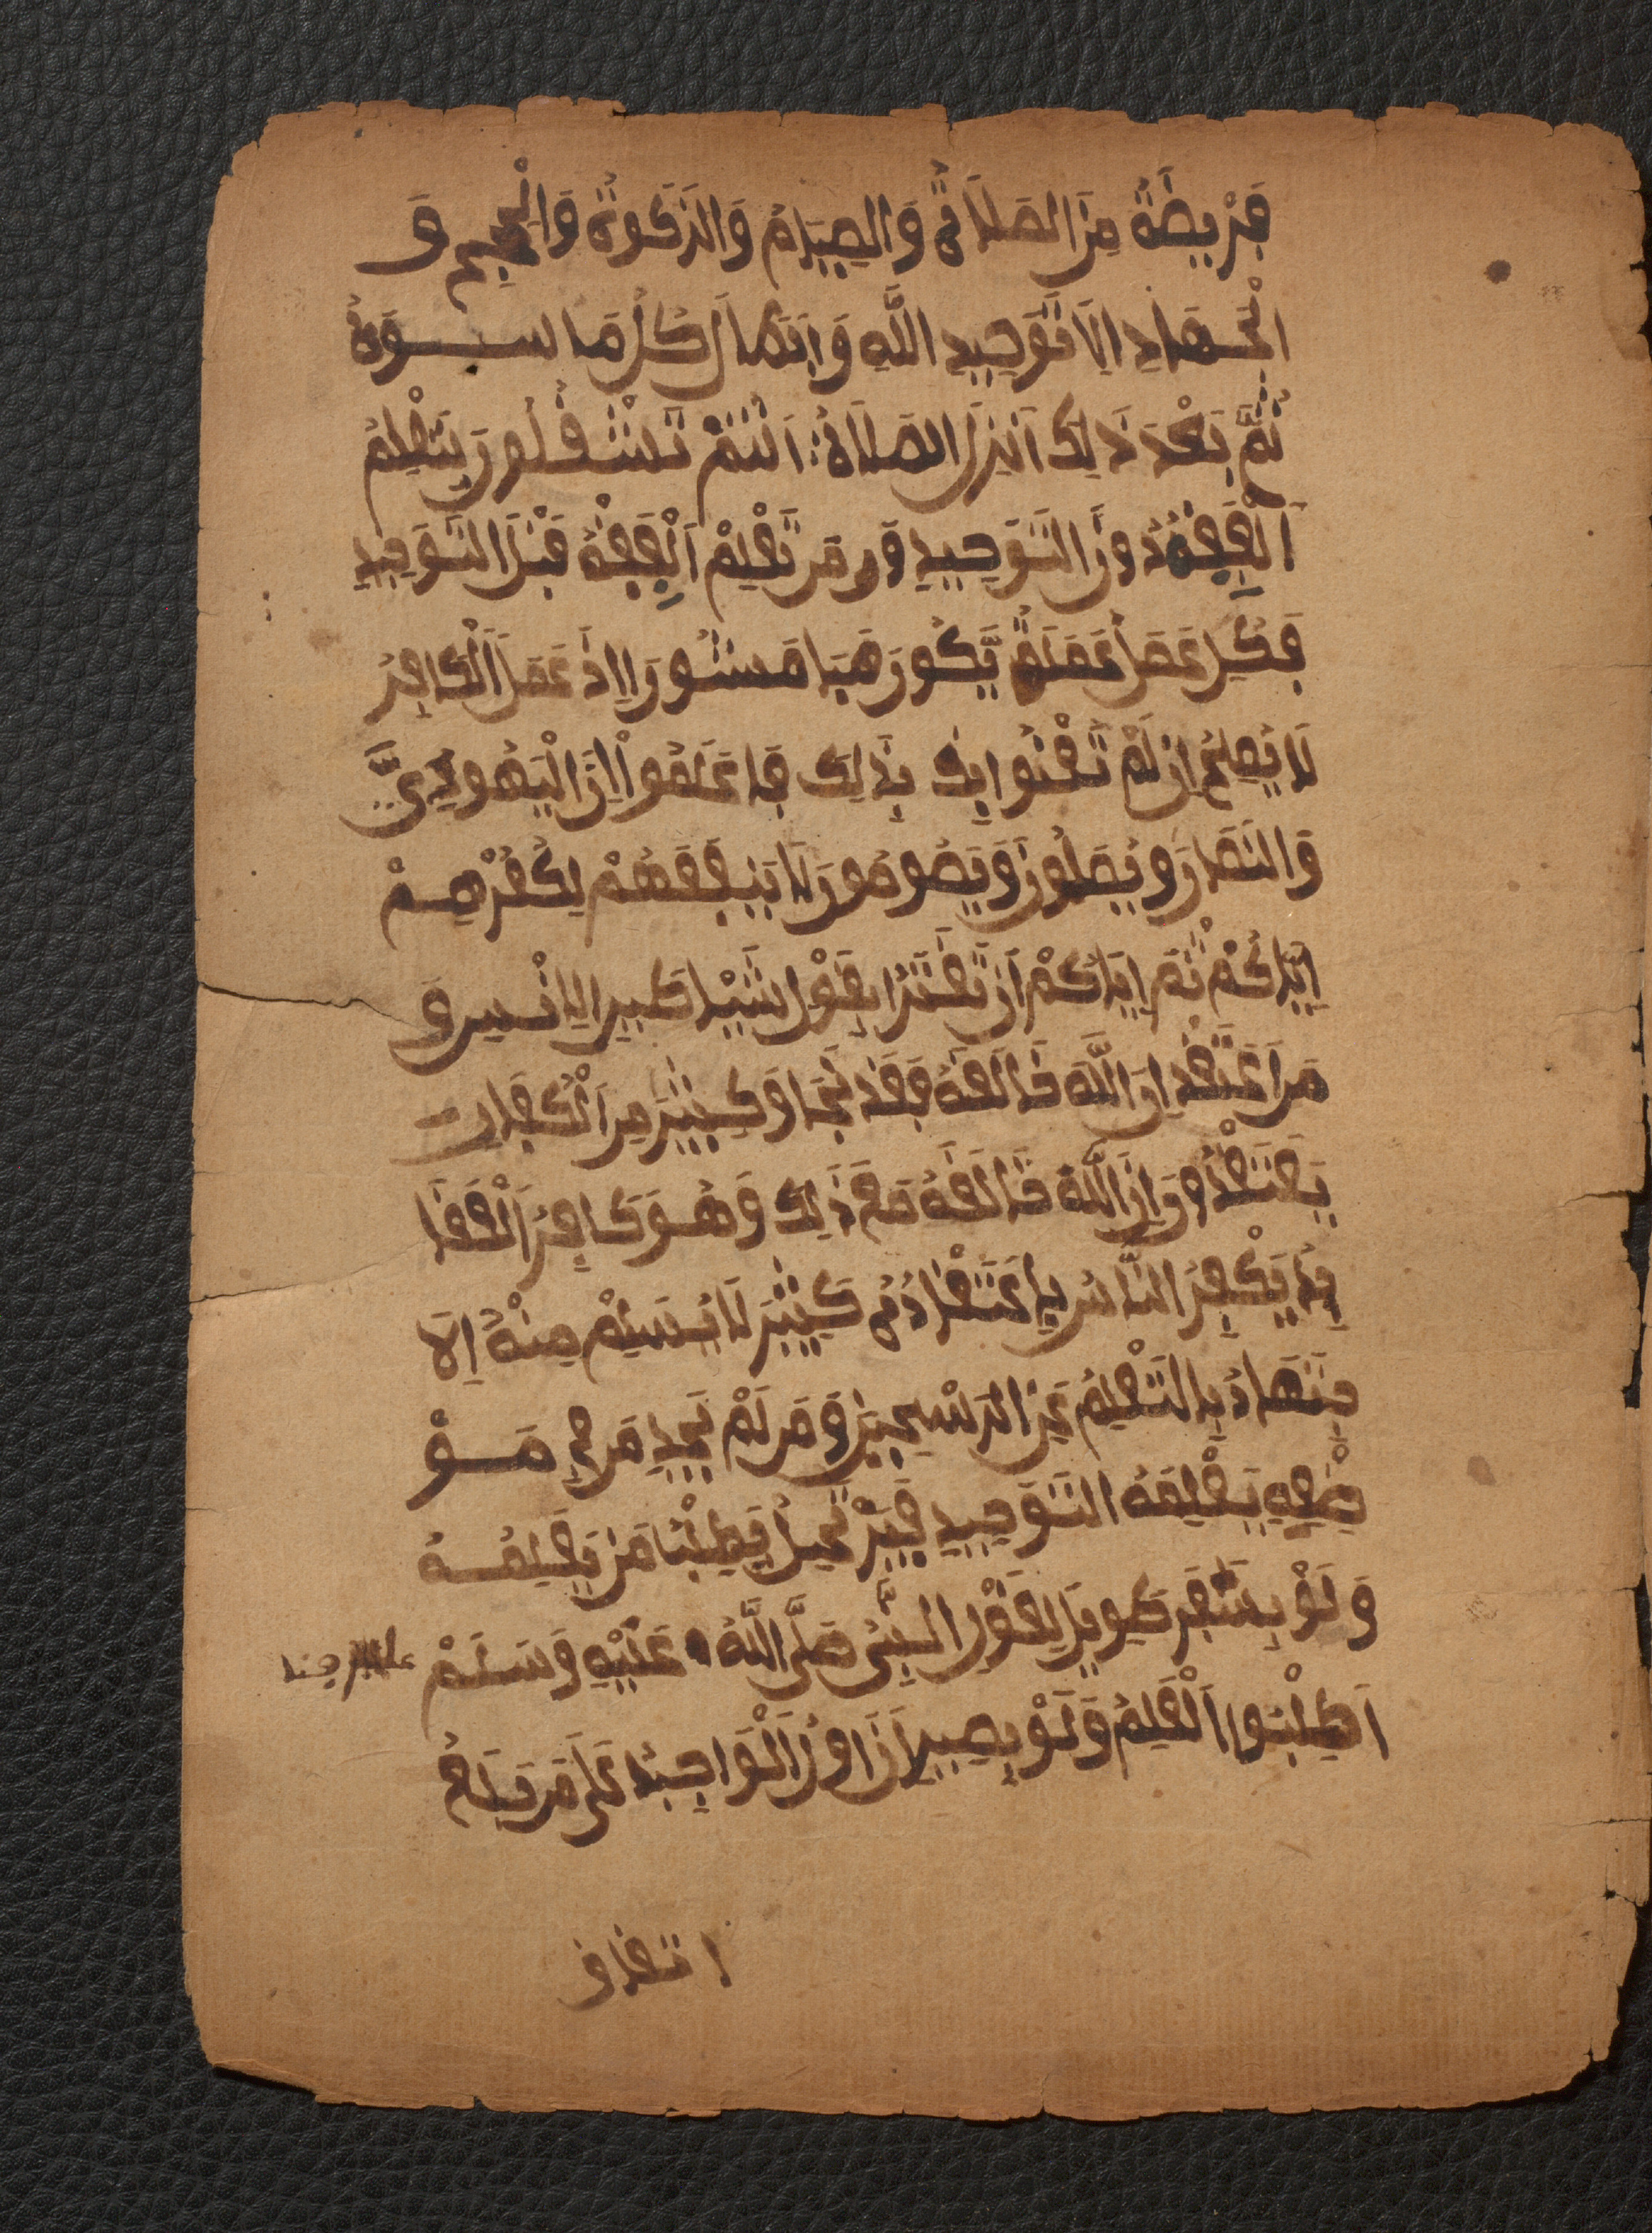 فَرِيضَةُ مِنَ الصَلَاةُ وَالصِيَامُ وَالزَكَوةُ وَالْحَجِ وَ
الْجِهَادِ اِلَا تَوَحِيدِ اللَّهِ وَابْتَطَالَ كُلُ مَا سِوَهُ
ثُمَّ بَعْدَ ذَلِكَ اَنزِلَ الصَلَاةُ اَنْتُمْ تَشْتَغِلُونَ بِتَعْلِمُ
اَلْفِقْهُ دُونَ التَوَحِيدِ وَمَن تَعْلِمْ اَلْفِقْهُ قَبْلَ التَوَحِيدِ
فَكُلِ عَمَلَ عَمَلَهُ يَّكُونَ هَبَا مَنثُورَا اِذَ عَمَلَ الْكَافِرُ
لَا يُصِلِحُ اِن لَمْ تَعْنُوا بِكَ بِذَلِكَ فَاعْلَمُوا اِنَ الْيَهُودِيَّ
وَالنَصَارَ وَيُصَلُونَ وَيَصُومُونَ لَا يَنفَعَهُمْ لِكُفْرِهِمْ
اِيَّاكُمْ ثُمَ اِيَّاكُمْ اَن تَغْتَرُا بِقَوْلِ شَيْا طَيِنِ الاِنْسِينِ وَ
مَن اَعْتَقَدَ اِنَ اللَّهَ خَالَقَهُ فَقَدْ نَجَا وَكَثِيِرَ مِنَ الْكُفَارِ
يَعْتَقْدُونَ اِنَ اللَّهَ خَالَقَهُ مَعَ ذَلِكَ وَهُوَ كَافِرُ اَلْعَقَا
يِدُ يَكْفِرُ النَّاسُ بِاعْتَقَادُهُ كَثِيِرَ لَا يُسَلِمْ مِنْهُ اِلَا
مِنَهَا دُ بِالتَعْلِمُ عَنِ الرَسِخِينَ وَمَن لَمْ يَجِدِ مَن فِي مَوْ
ضِعِهِ يَعْلِمَهُ التَوَحِيدِ فَيَرْ حَيلُ يَطِلْبُا مَن يَعْلِمُهُ
وَلَوْ بِسَفَرِ طَوِيلِ لِقَوْلِ النَّبِيُ صَلَّى اللَّهُ عَلَيْهِ وَسَلَمْ
اَطْلِبُوا اَلْعِلِمُ وَلَوْ بِصِينِ اَنَ اوَلُ اَلْوَاجِبُ عَلَى مَن بَلَغُ
اتفاق